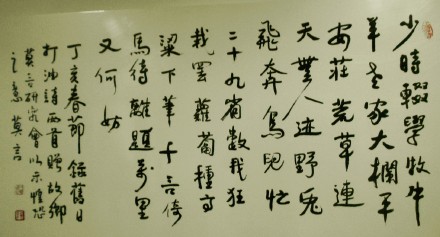 少時輟學牧牛
羊老家大欄平
安莊荒草連
天無人迹野兔
飛奔鳥兒忙
二十九省數我狂
栽罷蘿蔔種高
粱下筆千言倚
馬待離題萬里
又何妨
丁亥春節錄舊日
打油詩兩首贈故鄉
莫言研究會以示惶恐
之意 莫言